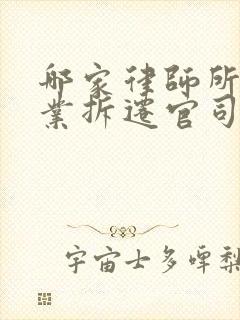 哪家律師所
業拆遷官司
宇宙士多啤梨